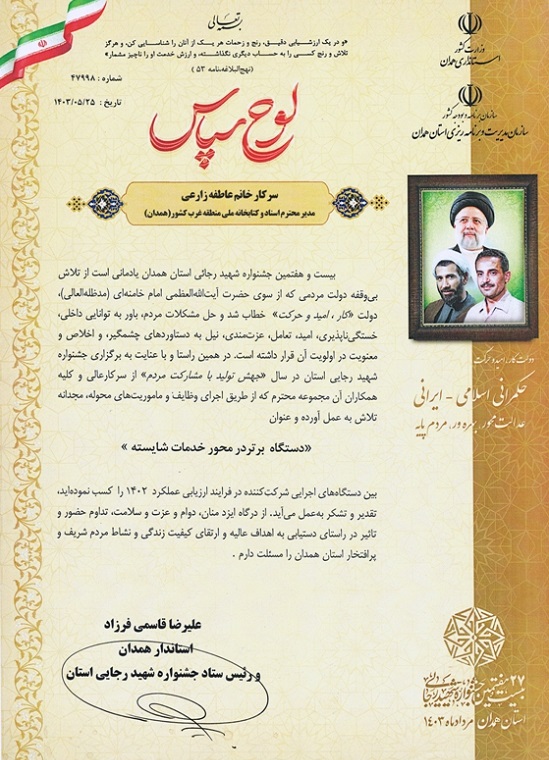 بسمه تعالی
«و در یک ارزشیابی دقیق، رنج و زحمات هر یک از آنان را شناسایی کن، و هرگز
تلاش و رنج کسی را به حساب دیگری نگذاشته، و ارزش خدمت او را ناچیز مشمار»
(نهج‌البلاغه،نامه ۵۳)
شماره : ۴۷۹۹۸
تاریخ : ۱۴۰۳/۰۵/۲۵
وزارت کشور
استانداری همدان
سازمان برنامه و بودجه کشور
سازمان مدیریت و برنامه ریزی استان همدان
لوح سپاس
سرکار خانم عاطفه زارعی
مدیر محترم اسناد و کتابخانه ملی منطقه غرب کشور(همدان)
بیست و هفتمین جشنواره شهید رجائی استان همدان یادمانی است از تلاش
بی‌وقفه دولت مردمی که از سوی حضرت آیت‌الله‌العظمی امام خامنه‌ای (مدظله‌العالی)،
دولت «کار ، امید و حرکت» خطاب شد و حل مشکلات مردم، باور به توانایی داخلی،
خستگی‌ناپذیری، امید، تعامل، عزت‌مندی، نیل به دستاوردهای چشمگیر، و اخلاص و
معنویت در اولویت آن قرار داشته است. در همین راستا و با عنایت به برگزاری جشنواره
شهید رجایی استان در سال «جهش تولید با مشارکت مردم» از سرکارعالی و کلیه
همکاران آن مجموعه محترم که از طریق اجرای وظایف و ماموریت‌های محوله، مجدانه
تلاش به عمل آورده و عنوان
«دستگاه برتردر محور خدمات شایسته »
بین دستگاه‌های اجرایی شرکت‌کننده در فرایند ارزیابی عملکرد ۱۴۰۲ را کسب نموده‌اید،
تقدیر و تشکر به‌عمل می‌آید. از درگاه ایزد منان، دوام و عزت و سلامت، تداوم حضور و
تاثیر در راستای دستیابی به اهداف عالیه و ارتقای کیفیت زندگی و نشاط مردم شریف و
پرافتخار استان همدان را مسئلت دارم .
علیرضا قاسمی فرزاد
استاندار همدان
و رئیس ستاد جشنواره شهید رجایی استان
دولت کار، امید و حرکت
حکمرانی اسلامی - ایرانی
عدالت محور، بهره ور، مردم پایه
۲۷
بیست و هفتمین جشنواره شهید رجائی
استان همدان مردادماه ۱۴۰۳